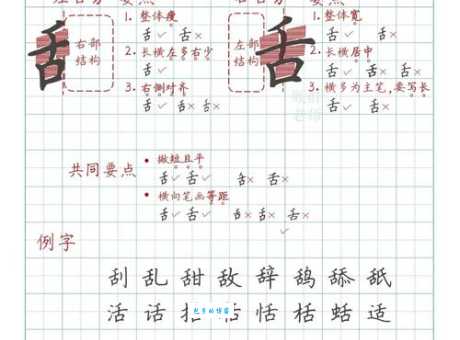 1. 整体瘦
舌 舌
2. 长横左多右少
舌
3. 右侧对齐
舌 舌 舌
舌
右部
结构
1. 整体宽
舌 舌
2. 长横居中
舌 舌 舌
3. 横多为主笔,要写长
舌 舌
左部
结构
舌
共同要点
• 撇短且平
舌 舌 舌 舌
• 横向笔画等距
舌 舌 舌 舌 舌
例字
刮 乱 甜 敌 辞 鸹 舔 舐
活 话 恬 栝 蛞 适